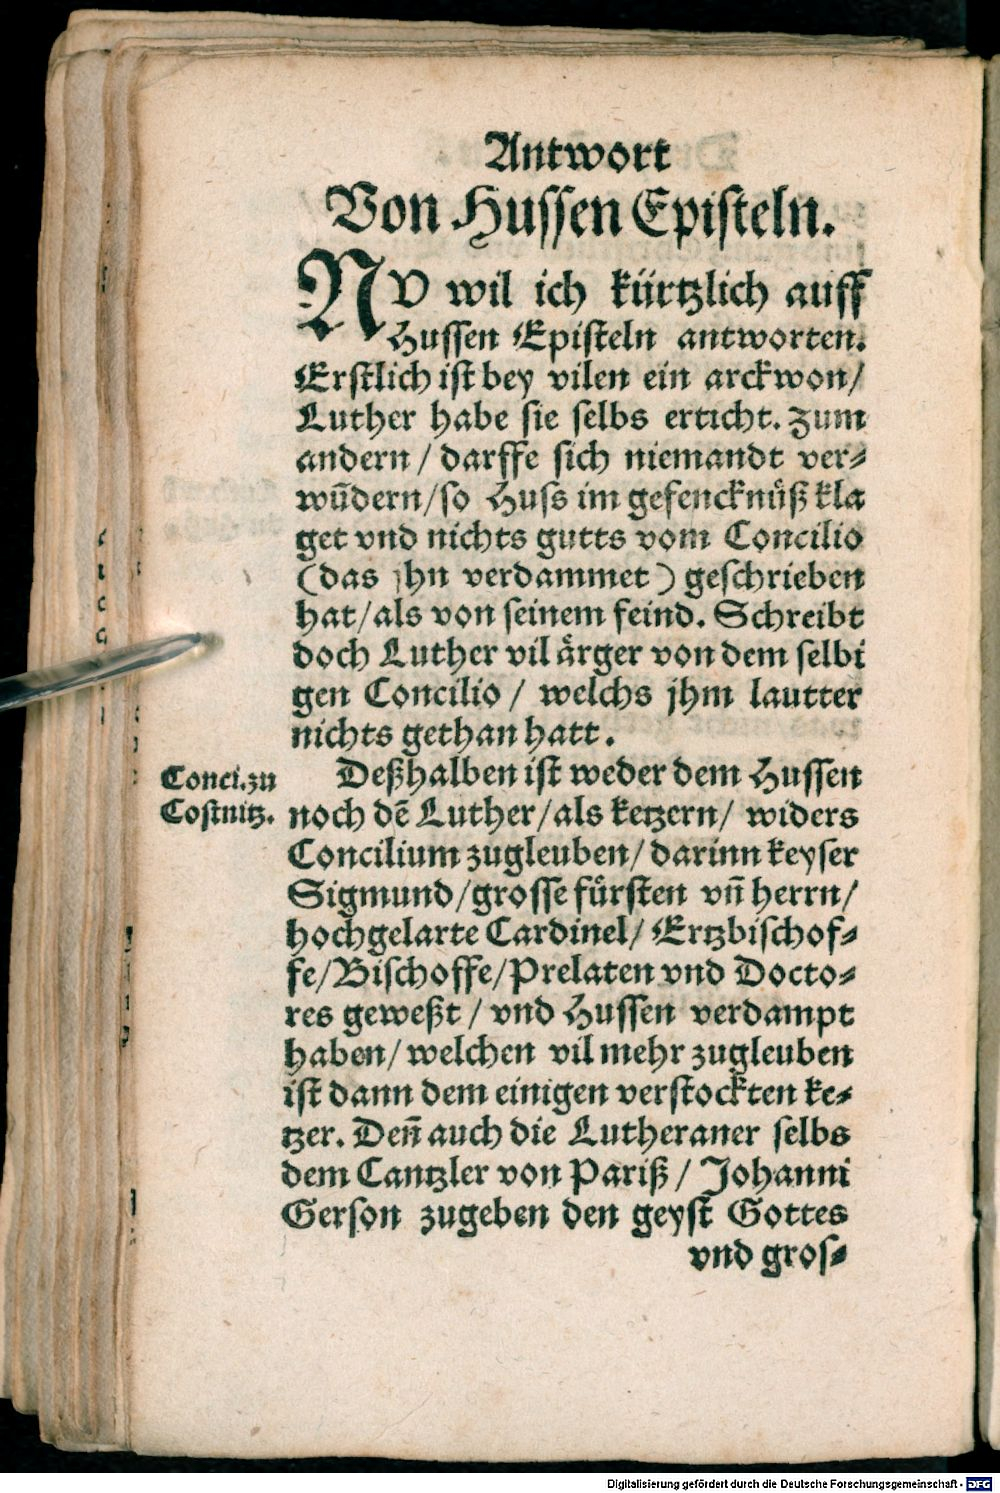 Antwort
Von Hussen Episteln.
NV wil ich kürtzlich auff
Hussen Episteln antworten.
Erstlich ist bey vilen ein arckwon/
Luther habe sie selbs erticht. Zum
andern / darffe sich niemandt ver⸗
wūdern/so Huss im gefencknuͤß kla
get vnd nichts gutts vom Concilio
(das jhn verdammet) geschrieben
hat/als von seinem feind. Schreibt
doch Luther vil aͤrger von dem selbi
gen Concilio / welchs jhm lautter
nichts gethan hatt.
Conci. zu
Costnitz.
Deßhalben ist weder dem Hussen
noch dē Luther/als ketzern/ widers
Concilium zugleuben/darinn keyser
Sigmund/grosse fuͤrsten vñ herrn/
hochgelarte Cardinel/ Ertzbischof⸗
fe/Bischoffe/Prelaten vnd Docto⸗
res geweßt / vnd Hussen verdampt
haben/ welchen vil mehr zugleuben
ist dann dem einigen verstockten ke⸗
tzer. Deñ auch die Lutheraner selbs
dem Cantzler von Pariß / Johanni
Gerson zugeben den geyst Gottes
vnd gros⸗
Digitalisierung gefördert durch die Deutsche Forschungsgemeinschaft - DFG